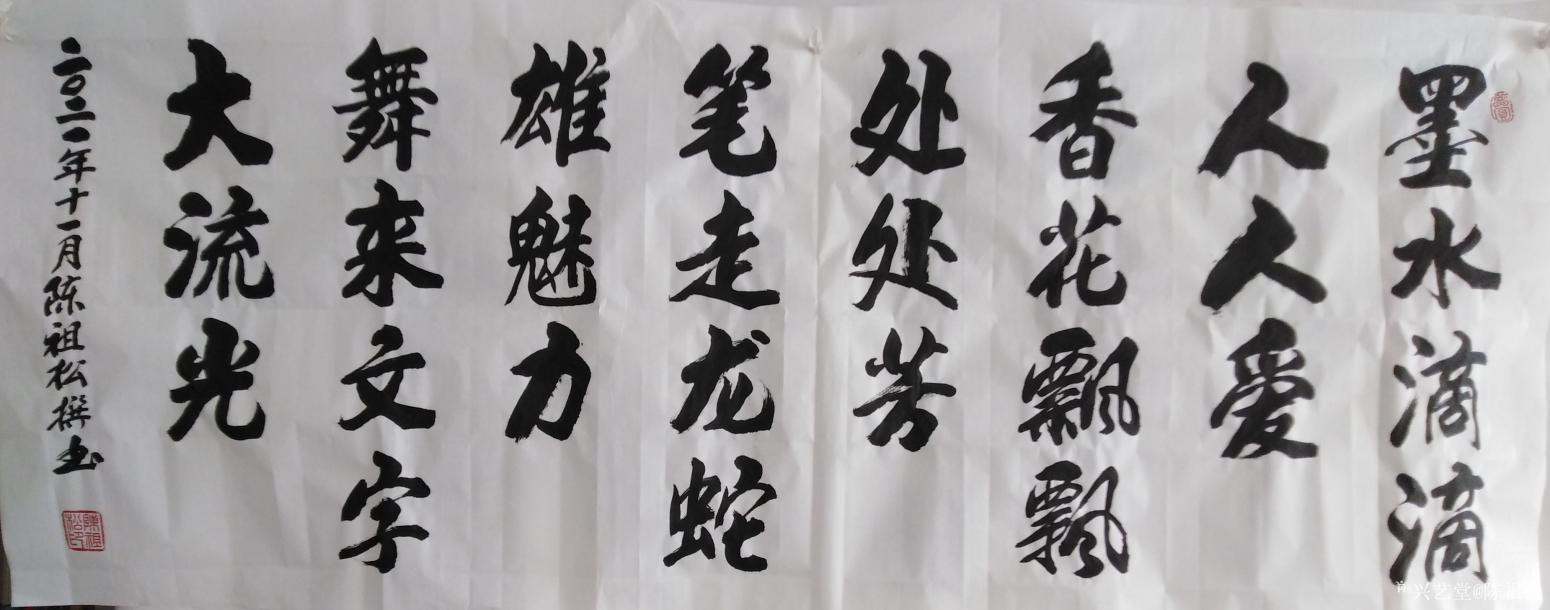 墨水滴滴
人人爱
香花飘飘
处处芳
笔走龙蛇
雄魅力
舞来文字
大流光
二〇二〇年十一月陈祖松撰书
陳祖松印
兴艺堂@陈祖